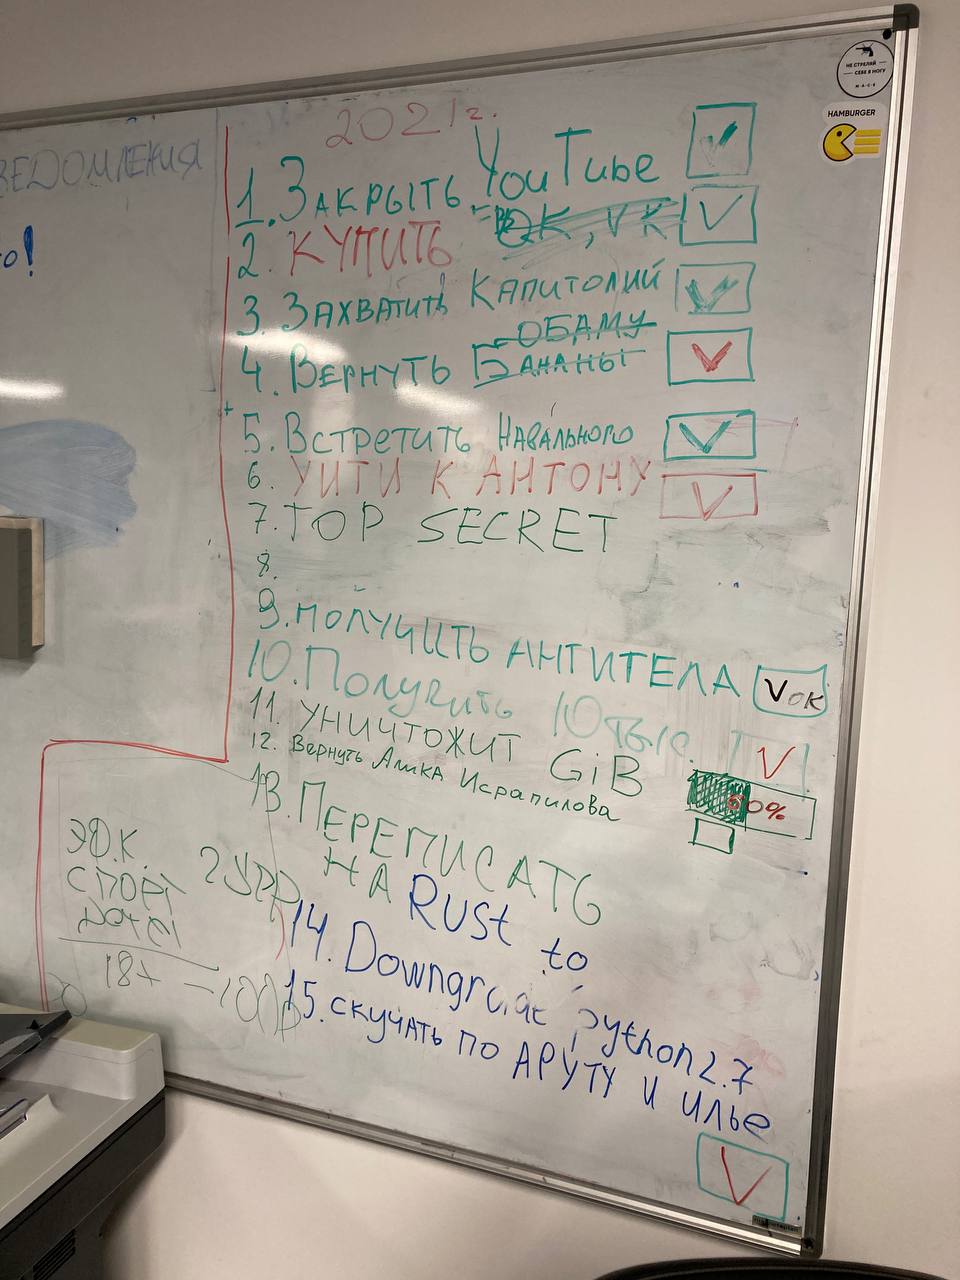 НЕ СТРЕЛЯЙ
СЕБЕ В НОГУ
HAMBURGER
ВЕДОМЛЕНИЯ
о!
2021г.
1. ЗАКРЫТЬ YouTube
2. КУПИТЬ OK, VK
3. ЗАХВАТИТЬ КАПИТОЛИЙ
ОБАМУ
4. ВЕРНУТЬ БАНАНЫ
5. ВСТРЕТИТЬ НАВАЛЬНОГО
6. УЙТИ К АНТОНУ
7. TOP SECRET
8.
9. ПОЛУЧИТЬ АНТИТЕЛА OK
10. Получить 10 тыс.
11. УНИЧТОЖИТ GiB
50%
12. Вернуть Алика Исрапилова
13. ПЕРЕПИСАТЬ
НА Rust
14. Downgrade to python2.7
15. СКУЧАТЬ ПО АРУТУ И ИЛЬЕ
СПОРТ
18+ -100